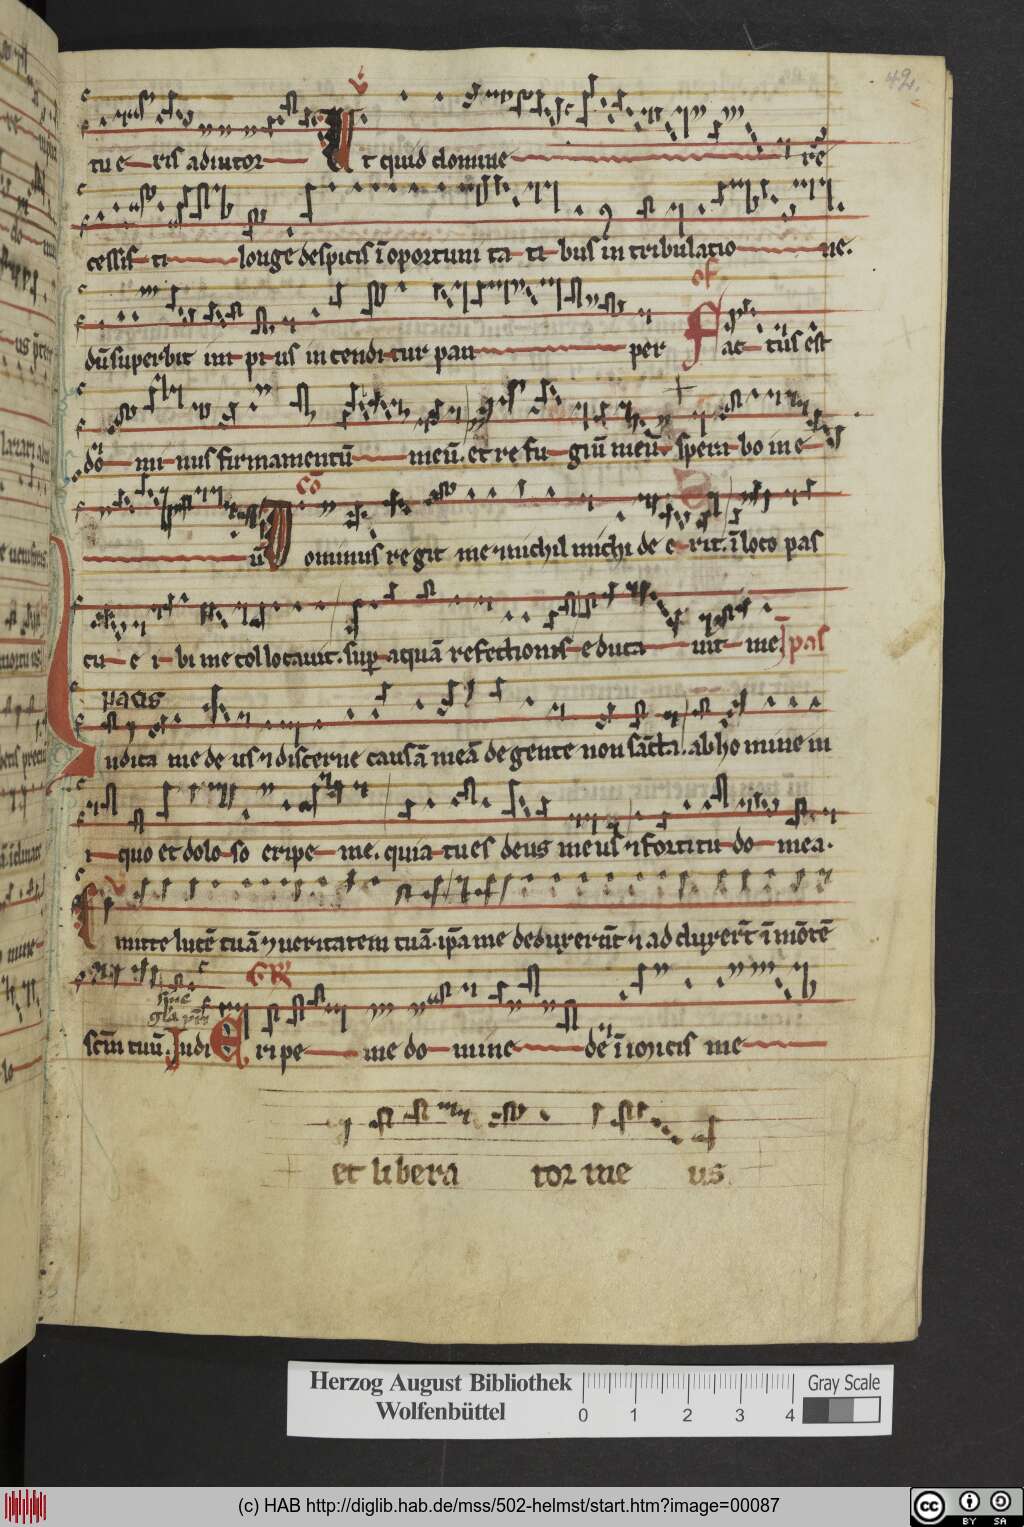 42.
tu e ris adiutor ℣ Ut quid domine re
cessis ti longe despicis ī oportuni ta ti bus in tribulatio ne.
dū superbit im pi us incenditur pau per of Fac tus est
do mi nus firmamentū meū. et re fu giū meū. spera bo in e
ū cō Dominus regit me ⁊ nichil michi de e rit. ī loco pas
cu e i bi me collocavit. sup aquā refectionis educa vit me pas
pacis
Judica me de us ⁊ discerne causā meā de gente non sācta. ab homine in
i quo et dolo so eripe me. quia tu es deus meus ⁊ fortitu do mea.
Emitte lucē tuā ⁊ veritatem tuā. ip̄a me deduxerūt ⁊ adduxer̄t ī mōtē
scm̄ tuū. Judi GR Eripe me do mine de inimicis me
et libera tor me us
Herzog August Bibliothek
Wolfenbüttel
0 1 2 3 4
Gray Scale
(c) HAB http://diglib.hab.de/mss/502-helmst/start.htm?image=00087
cc BY SA